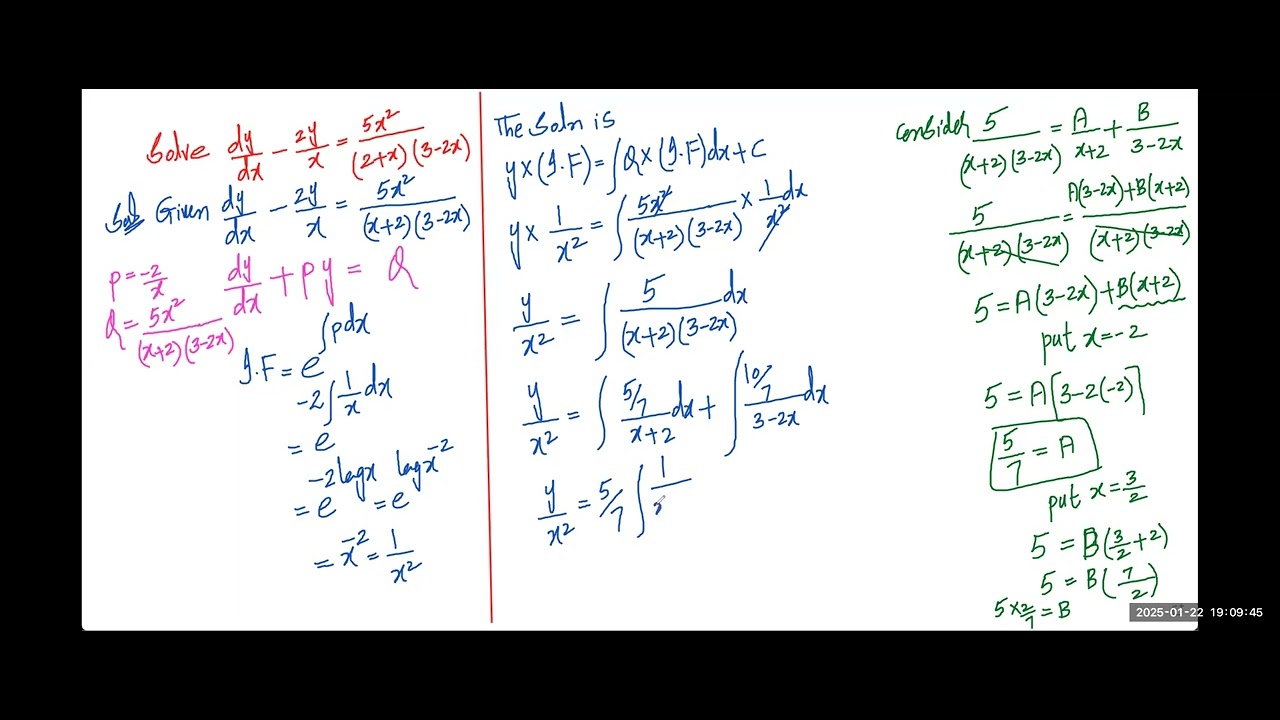 Solve dy/dx - 2y/x = 5x²/(2+x)(3-2x)
Sol Given dy/dx - 2y/x = 5x²/(x+2)(3-2x)
P = -2/x
dy/dx + Py = Q
Q = 5x²/(x+2)(3-2x)
I.F = e^∫pdx
= e^-2∫1/x dx
= e^-2logx = e^logx^-2
= x^-2 = 1/x²
The Soln is
y×(I.F) = ∫Q×(I.F)dx+C
y× 1/x² = ∫ 5x²/(x+2)(3-2x) × 1/x² dx
y/x² = ∫ 5/(x+2)(3-2x) dx
y/x² = ∫ 5/7/x+2 dx + ∫ 10/7/3-2x dx
y/x² = 5/7 ∫ 1/
Consider 5/(x+2)(3-2x) = A/x+2 + B/3-2x
5/(x+2)(3-2x) = A(3-2x)+B(x+2)/(x+2)(3-2x)
5 = A(3-2x)+B(x+2)
put x=-2
5 = A[3-2(-2)]
5/7 = A
put x=3/2
5 = B(3/2+2)
5 = B(7/2)
5×2/7 = B
2025-01-22 19:09:45